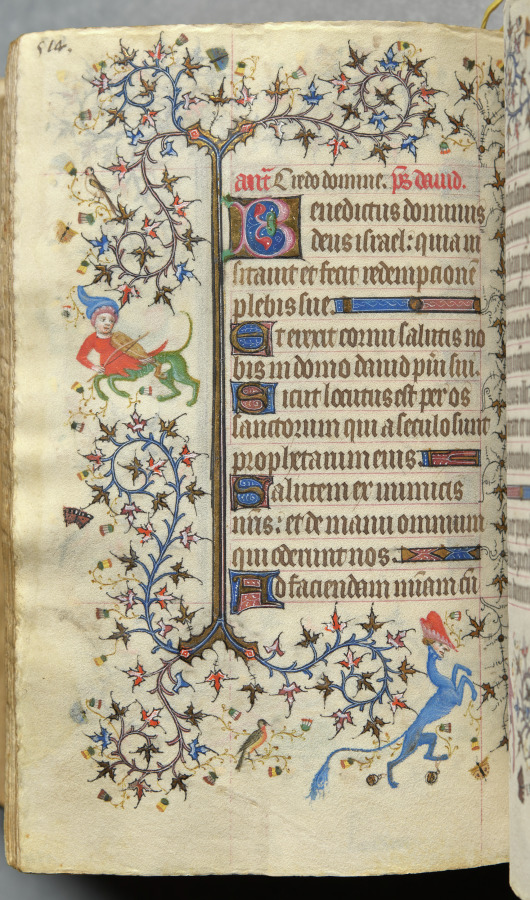 514.
añt Credo domine. p̄s dauid.
Benedictus dominus
deus israel: quia ui
sitauit et fecit redempcionē
plebis sue
Et erexit cornu salutis no
bis in domo dauid pūi sui.
Sicut locutus est per os
sanctorum qui a seculo sunt
prophetarum eius.
Salutem ex inimicis
nr̄is: et de manu omnium
qui oderunt nos.
Ad faciendam mīam cū